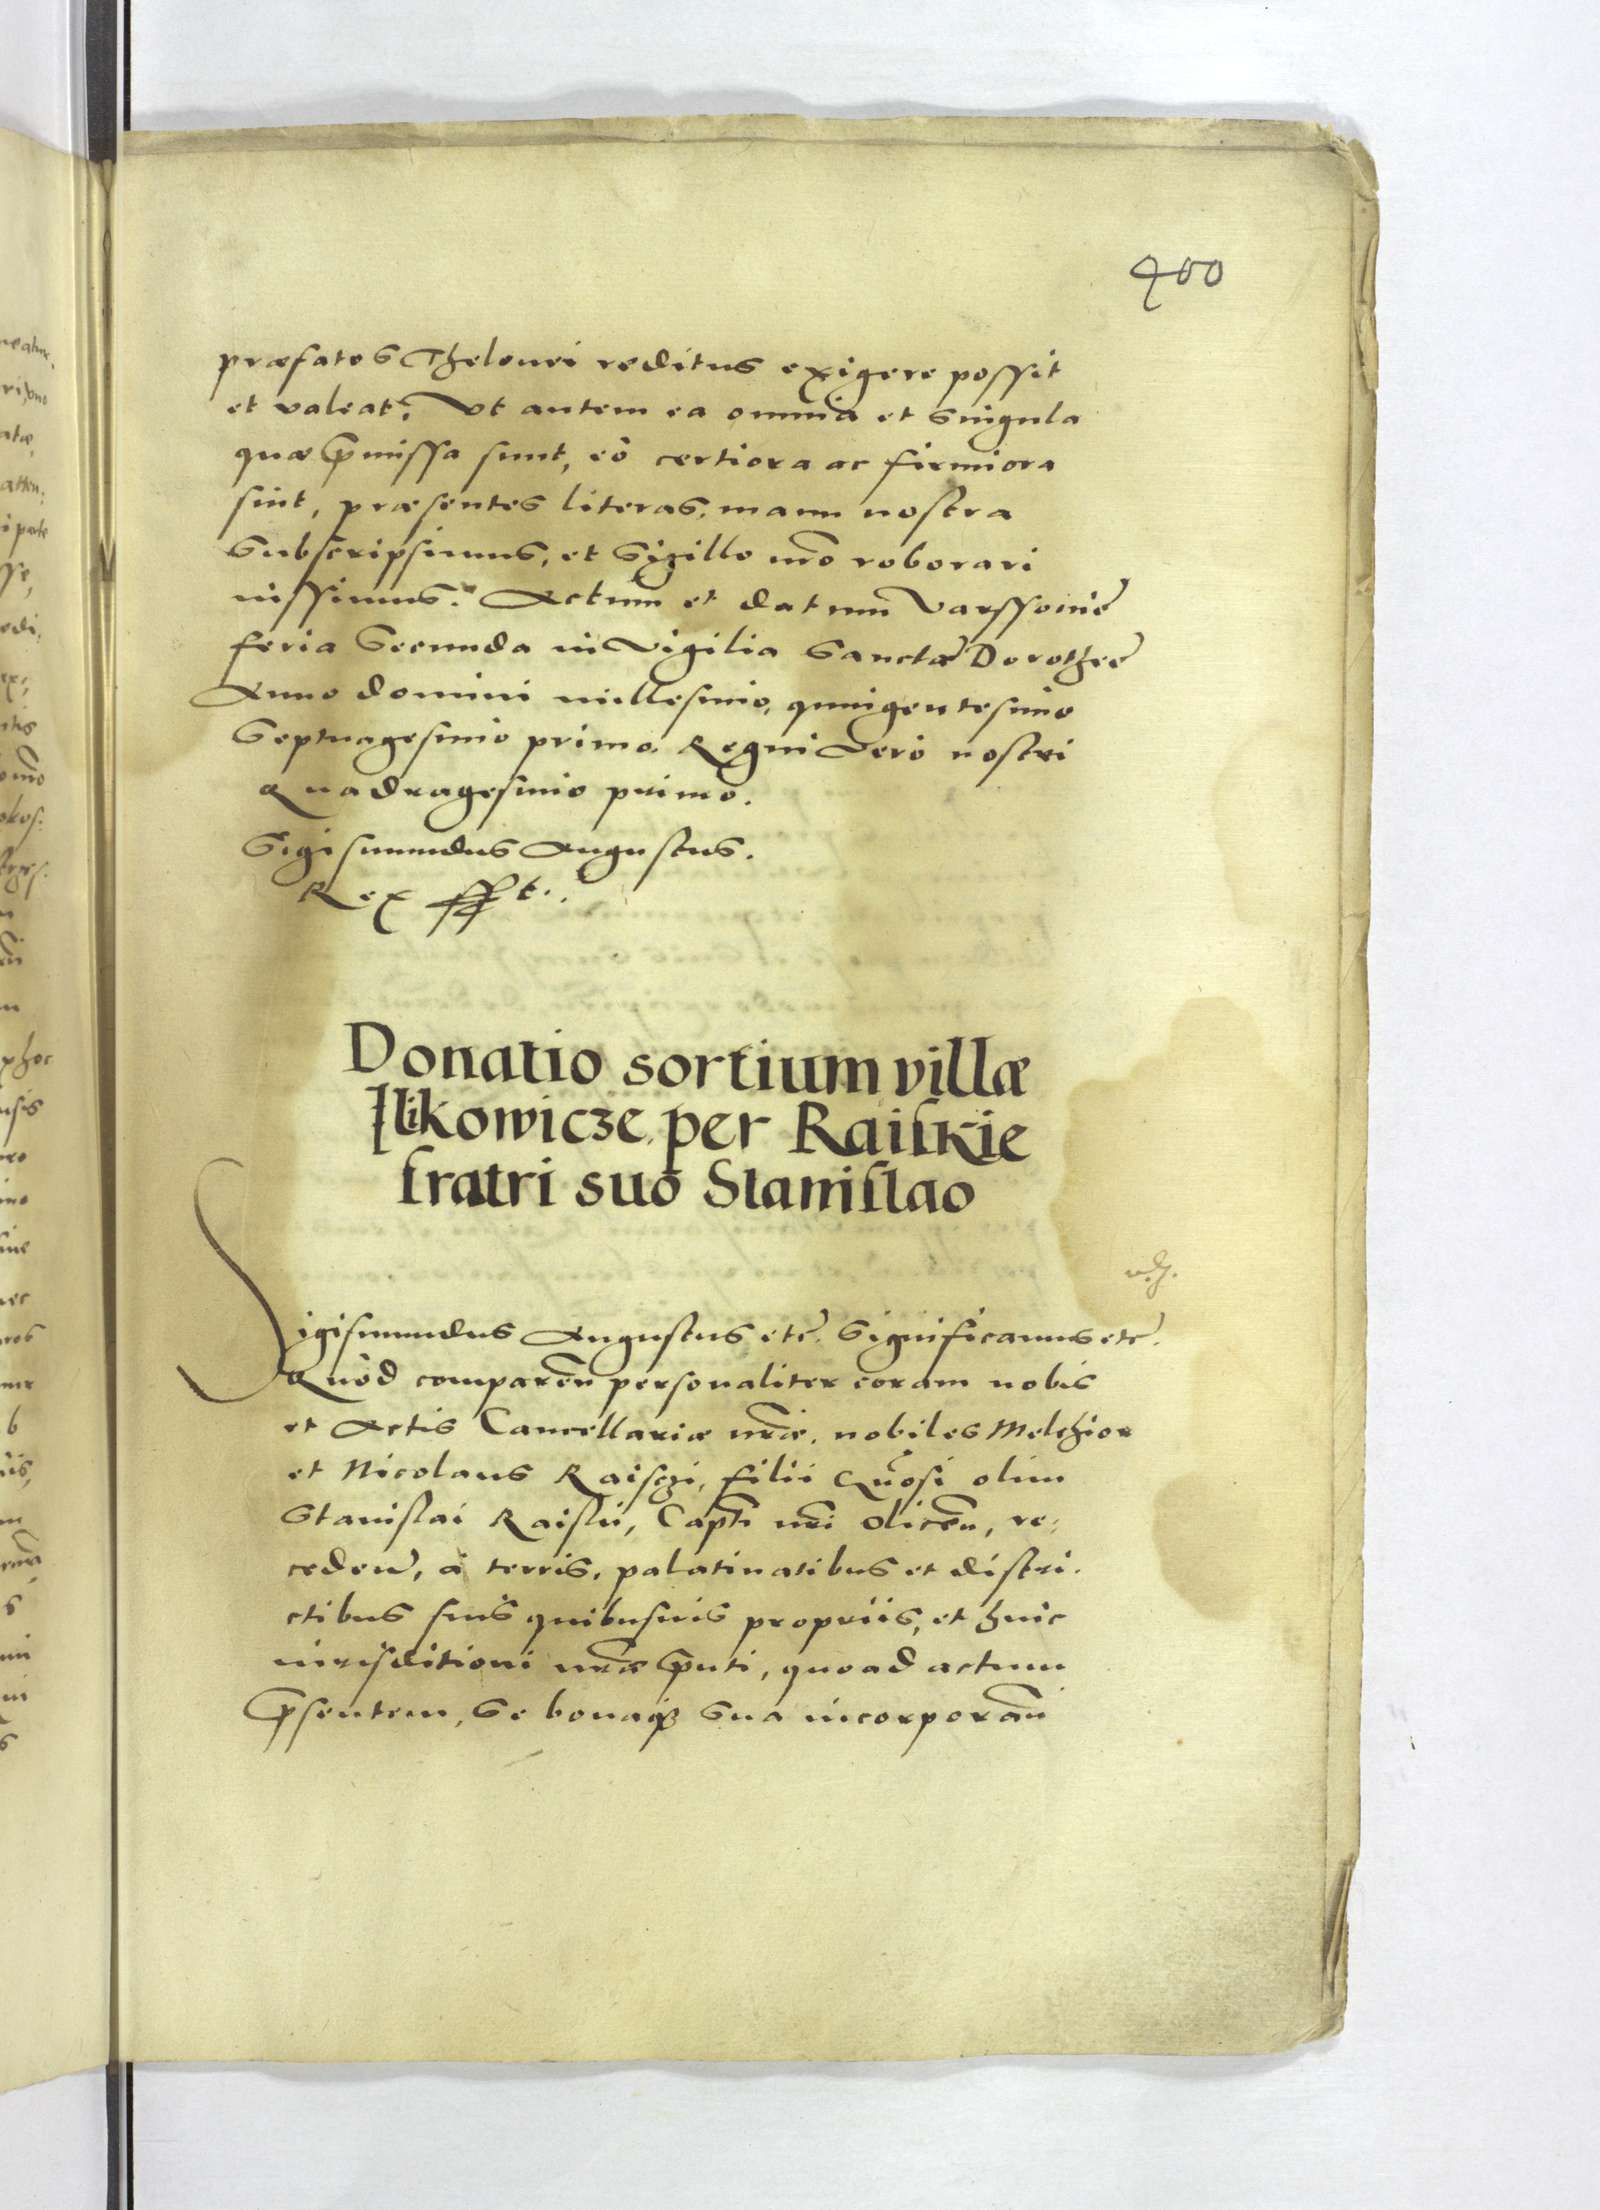 400
præfatos Thelonei reditus exigere possit
et valeat. Vt autem ea omnia et singula
quæ p̄missa sunt, eò certiora ac firmiora
sint, præsentes literas, manu nostra
subscripsimus, et sigillo nr̃o roborari
iussimus. Actum et datum Varssoviæ
feria secunda in vigilia Sanctæ Dorotheæ
Anno domini millesimo, quingentesimo
septuagesimo primo, Regni verò nostri
Quadragesimo primo.
Sigismundus Augustus.
Rex sspt.
Donatio sortium villæ
Ilikowicze per Raiſkie
fratri suo Staniſlao
Sigismundus Augustus etc̃. Significamus etc̃.
Quòd comparen̄ personaliter coram nobis
et Actis Cancellariæ nr̃æ, nobiles Melchior
et Nicolaus Raisczi, filii Gn̄osi olim
Stanislai Raiski, Capn̄i nr̃i Olicen̄, re:
ceden̄, à terris, palatinatibus et distri.
ctibus suis quibusuis propriis, et huic
iurisditioni nr̃æ p̄nti, quoad actum
p̄sentem, se bonaqꝫ sua incorporan̄